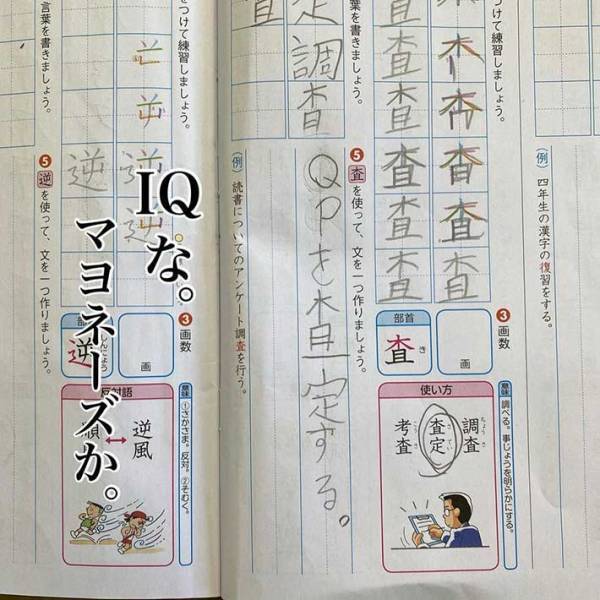 (例) 四年生の漢字の復習をする。
をつけて練習しましょう。
査
査
査
査
査
査
査
査
❸ 画数
画
部首
査
き
使い方
調査
ちょうさ
査定
さてい
考査
こうさ
意味
調べる。事じょうを明らかにする。
言葉を書きましょう。
定
調
査
査
❺ 査を使って、文を一つ作りましょう。
QPを査定する。
(例) 読書についてのアンケート調査を行う。
をつけて練習しましょう。
逆
逆
逆
❸ 画数
画
部
逆
しんにょう
反対語
逆風
順
意味
①さかさま。反対。②そむく。
言葉を書きましょう。
❺ 逆を使って、文を一つ作りましょう。
IQな。
マヨネーズか。